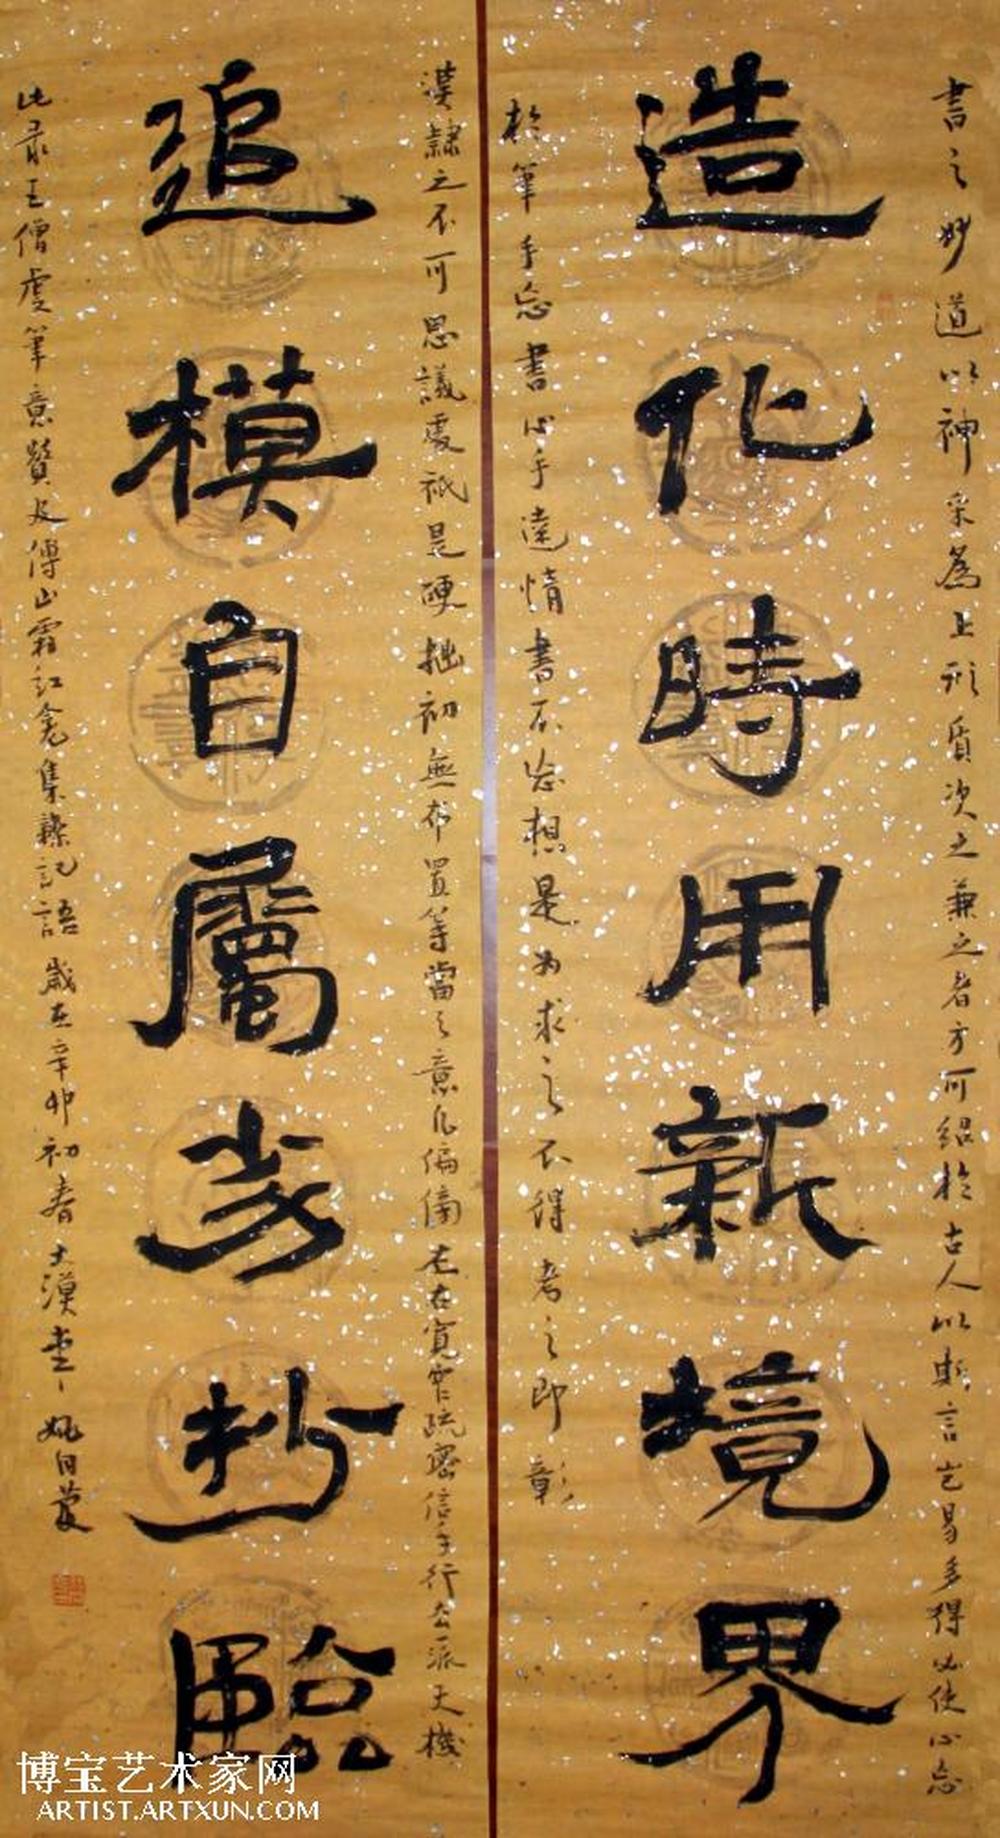 書之妙道以神采為上形質次之兼之者方可紹於古人以斯言豈易多得必使心忘
造化時用新境界
於筆手忘書心手達情書不忘想是為求之不得考之即彰
漢隸之不可思議處祇是硬拙初無布置等當之意凡偏傍左右寬窄疏密信手行去一派天機
追模自屬抄臨
此录王僧虔筆意贊及傅山霜紅龕集雜記語歲在辛卯初春大漠堂姚
博宝艺术家网
ARTIST.ARTXUN.COM